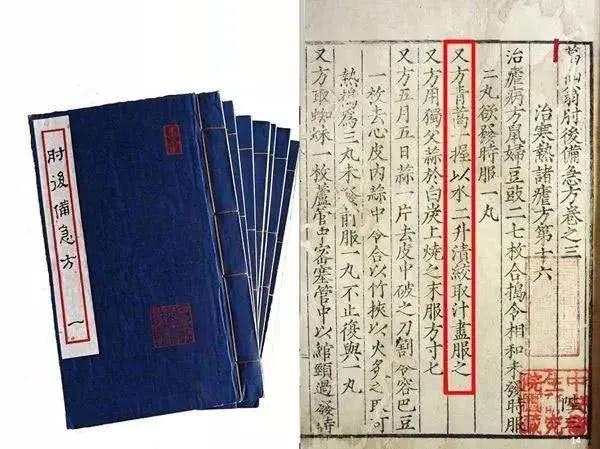 肘後備急方
一
仙翁肘後備急方卷之三
治寒熱諸瘧方第十六
治瘧病方鼠婦豆豉二七枚合搗令相和未發時服
二丸欲發時服一丸
又方青蒿一握以水二升漬絞取汁盡服之
又方用獨父蒜於白炭上燒之末服方寸七
又方五月五日蒜一片去皮中破之刀割令容巴豆
一枚去心皮內蒜中令合以竹挾以火炙之取可
熱搗為三丸未發前服一丸不止復與一丸
又方取蜘蛛一枚蘆管中密塞管中以綰頸過發時
14